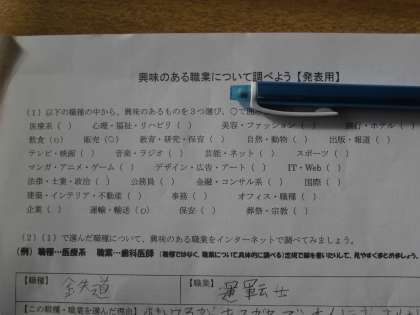 興味のある職業について調べよう【発表用】
(1) 以下の職種の中から、興味のあるものを3つ選び、○で囲
医療系 ( ) 心理・福祉・リハビリ ( ) 美容・ファッション ( ) 旅行・ホテル ( )
飲食 (○) 販売 (○) 教育・研究・保育 ( ) 自然・動物 ( ) 出版・報道 ( )
テレビ・映画 ( ) 音楽・ラジオ ( ) 芸能・ネット ( ) スポーツ ( )
マンガ・アニメ・ゲーム ( ) デザイン・広告・アート ( ) IT・Web ( )
法律・士業・政治 ( ) 公務員 ( ) 金融・コンサル系 ( ) 国際 ( )
建築・インテリア・不動産 ( ) 事務 ( ) オフィス・職種 (
企業 ( ) 運輸・輸送 (○) 保安 ( ) 葬祭・宗教 ( )
(2) (1) で選んだ職種について、興味のある職業をインターネットで調べてみましょう。
(例) 職種…医療系 職業…歯科医師 (職種ではなく、職業について具体的に調べる)定規で線を書いたりして、見やすくまとめましょう。
【職種】 鉄道 【職業】 運転士
【この職種・職業を選んだ理由】